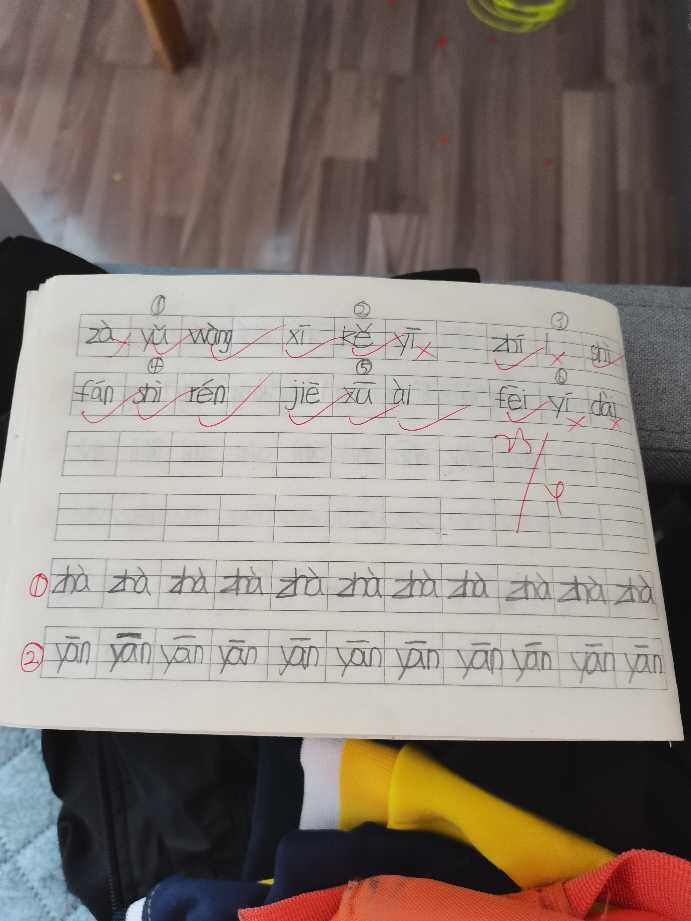 ① ② ③
zà yǔ wàng xī kě yī zhī shì
④ ⑤ ⑥
fán shì rén jiē xū ài fēi yī dài
① zhà zhà zhà zhà zhà zhà zhà zhà zhà zhà zhà
② yān yān yān yān yān yān yān yān yān yān yān